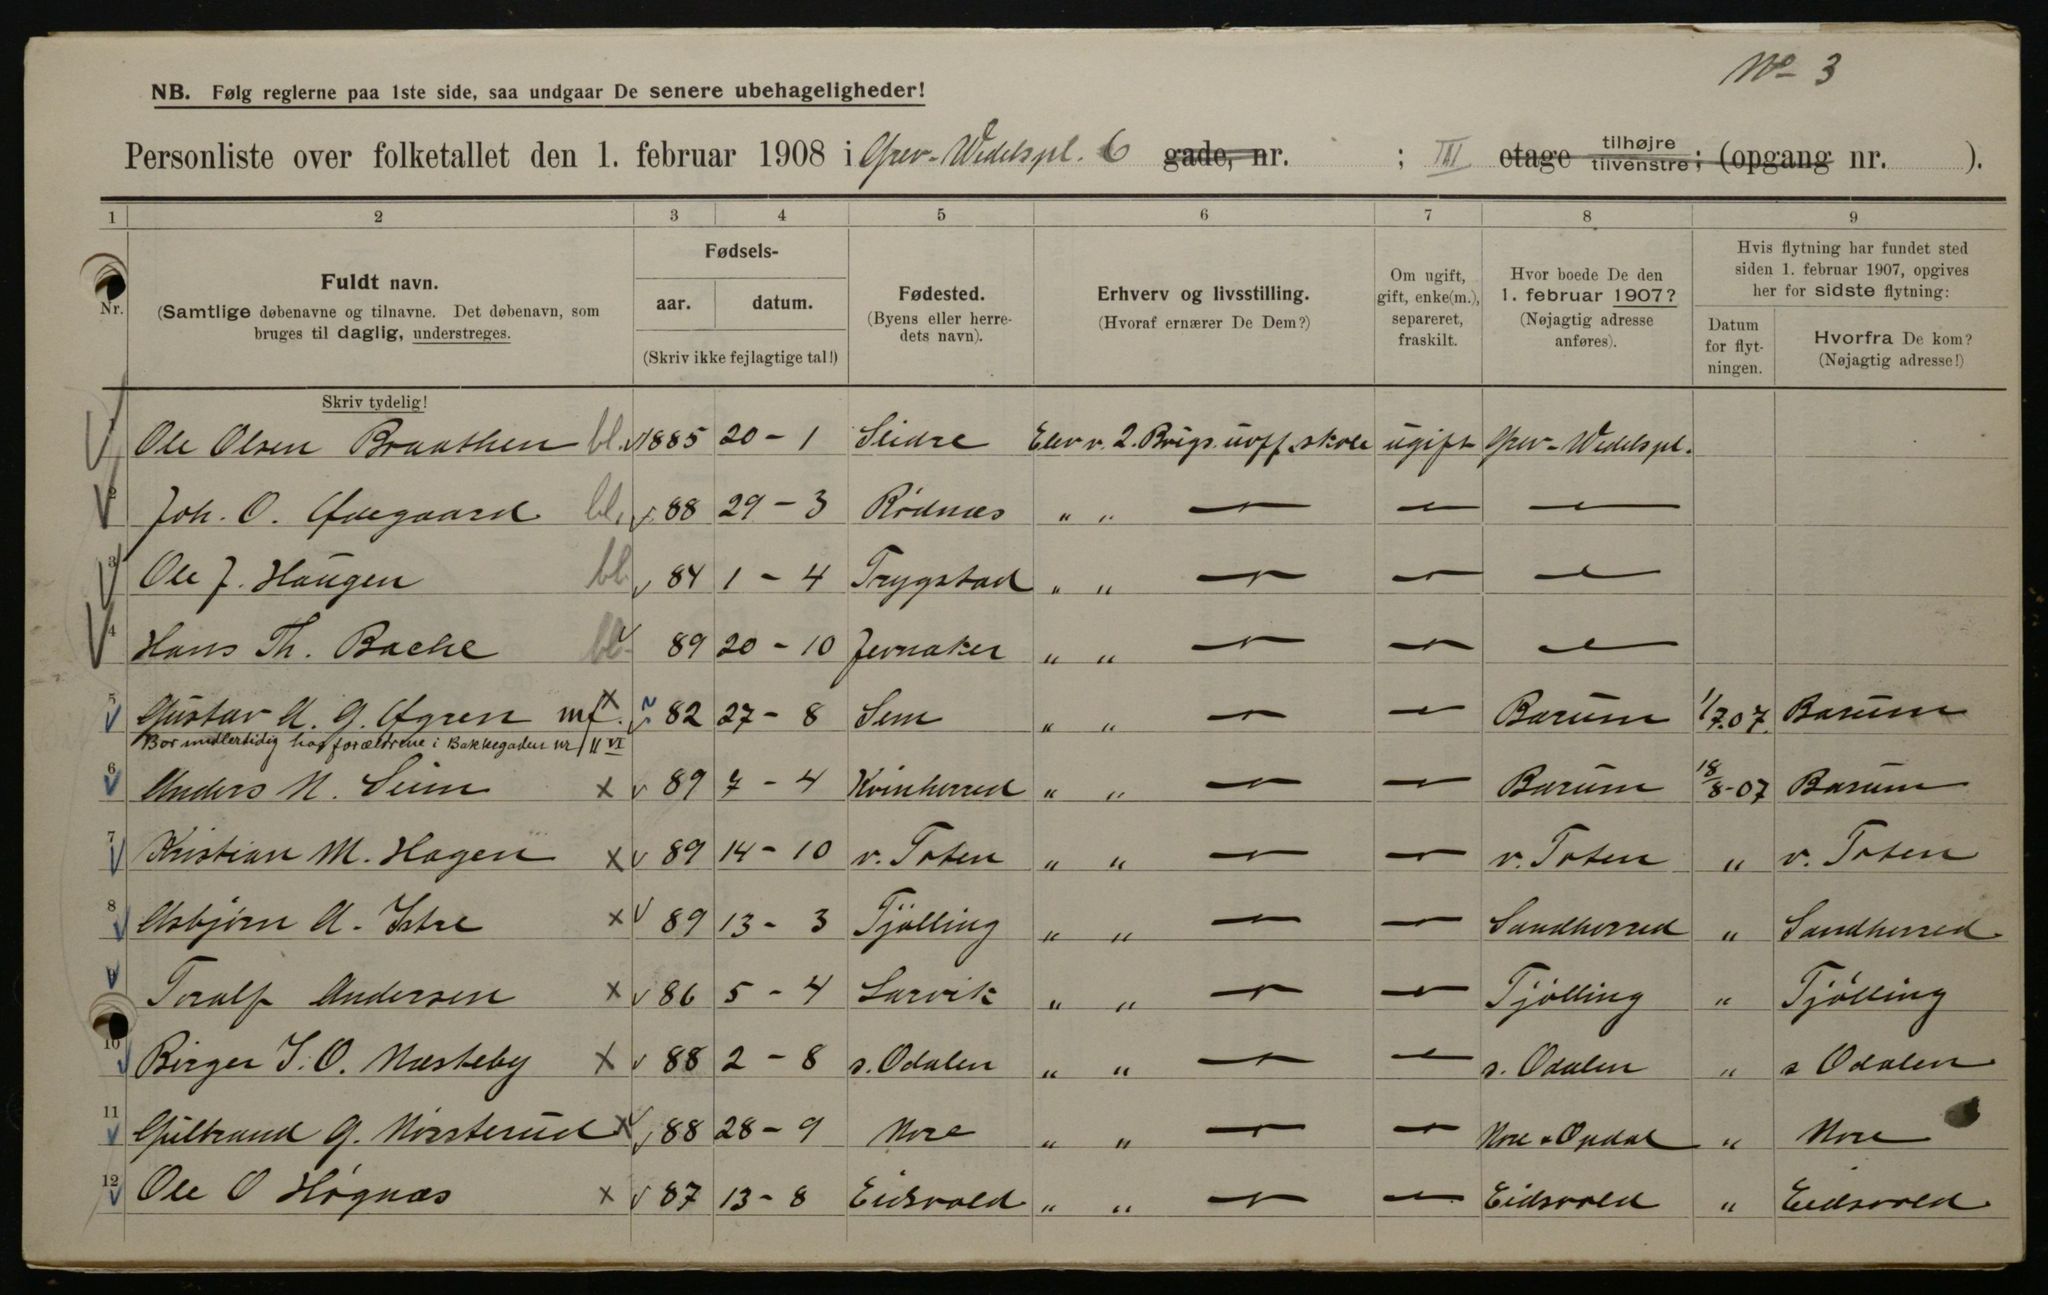 No 3
NB. Følg reglerne paa 1ste side, saa undgaar De senere ubehageligheder!
Personliste over folketallet den 1. februar 1908 i Grev-Wedelspl. 6 gade, nr. ; III etage tilhøjre tilvenstre; (opgang nr. ).
1 2 3 4 5 6 7 8 9
Nr.
Fuldt navn.
(Samtlige døbenavne og tilnavne. Det døbenavn, som
bruges til daglig, understreges.
Skriv tydelig!
Fødsels-
aar. datum.
(Skriv ikke fejlagtige tal!)
Fødested.
(Byens eller herre-
dets navn).
Erhverv og livsstilling.
(Hvoraf ernærer De Dem?)
Om ugift,
gift, enke(m.),
separeret,
fraskilt.
Hvor boede De den
1. februar 1907?
(Nøjagtig adresse
anføres).
Hvis flytning har fundet sted
siden 1. februar 1907, opgives
her for sidste flytning:
Datum
for flyt-
ningen.
Hvorfra De kom?
(Nøjagtig adresse!)
1 Ole Olsen Braathen bl. 1885 20 - 1 Slidre Elev v. 2. Brigs. uoff. skole ugift Grev-Wedelspl.
2 Joh. O. bl. 88 29 - 3 Rødnæs " " — — —
3 Ole J. Haugen bl. 84 1 - 4 Trygstad " " — — —
4 Hans Th. Bache bl. 89 20 - 10 Jevnaker " " — — —
5 Gustav A. G. Øgren mf. x 82 27 - 8 Sem " " — — Barum 1/7.07. Barum
Bor midlertidig hos forældrene i Bakkegaden nr 11 VI
6 Anders N. Seim x 89 7 - 4 Kvinherred " " — — Barum 18/8-07 Barum
7 Kristian M. Hagen x 89 14 - 10 v. Toten " " — — v. Toten " v. Toten
8 Asbjørn A. Istre x 89 13 - 3 Tjølling " " — — Sandherred " Sandherred
9 Toralf Andersen x 86 5 - 4 Larvik " " — — Tjølling " Tjølling
10 Birger I. O. Næsteby x 88 2 - 8 s. Odalen " " — — s. Odalen " s Odalen
11 Gulbrand G. Nørsterud x 88 28 - 9 Nore " " — — Nore & Opdal " Nore
12 Ole O Høgnæs x 87 13 - 8 Eidsvold " " — — Eidsvold " Eidsvold